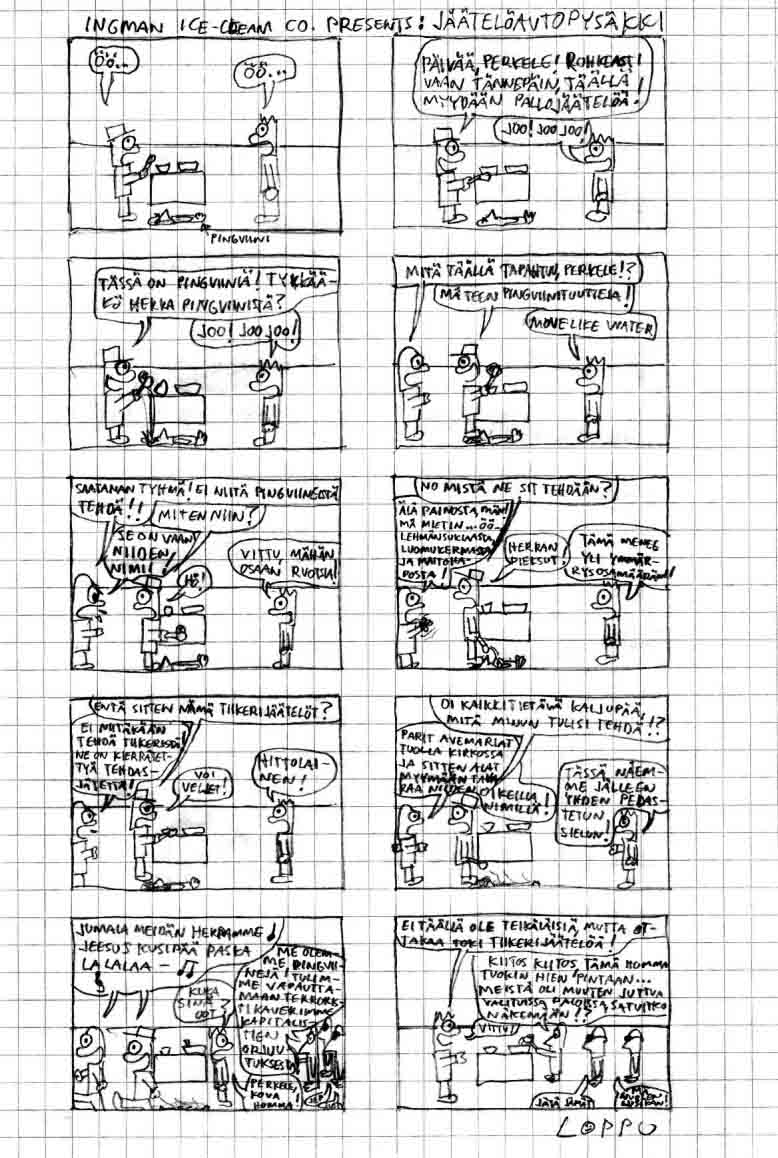 INGMAN ICE-CREAM CO. PRESENTS: JÄÄTELÖAUTOPYSÄKKI
ÖÖ...
ÖÖ...
PINGVIINI
PÄIVÄÄ, PERKELE! ROHKEASTI
VAAN TÄNNEPÄIN, TÄÄLLÄ
MYYDÄÄN PALLOJÄÄTELÖÄ!
JOO! JOO JOO!
TÄSSÄ ON PINGVIINIÄ! TYKKÄÄ-
KÖ HERRA PINGVIINISTÄ?
JOO! JOO JOO!
MITÄ TÄÄLLÄ TAPAHTUU, PERKELE!?
MÄ TEEN PINGVIINITUUTTEJA!
MOVE LIKE WATER
SAATANAN TYHMÄ! EI NIITÄ PINGVIINEISTÄ
TEHDÄ!!
MITEN NIIN?
SE ON VAAN
NIIDEN
NIMI!
HÖ!
VITTU, MÄHÄN
OSAAN RUOTSIA!
NO MISTÄ NE SIT TEHDÄÄN?
ÄLÄ PAINOSTA, MÄN!
MÄ MIETIN...ÖÖ...
LEHMÄNSUKLAASTA,
LUOMUKERMASTA
JA MAITORA-
POSTA!
HERRAN
PIEKSUT!
TÄMÄ MENEE
YLI YMMÄR-
RYSOSAMÄÄRÄNI!
ENTÄ SITTEN NÄMÄ TIIKERIJÄÄTELÖT?
EI NIITÄKÄÄN
TEHDÄ TIIKERISTÄ!
NE ON KIERRÄTET-
TYÄ TEHDAS-
JÄTETTÄ!
VOI
VELJET!
HITTOLAI-
NEN!
OI KAIKKITIETÄVÄ KALJUPÄÄ,
MITÄ MINUN TULISI TEHDÄ!?
PARIT AVEMARIAT
TUOLLA KIRKOSSA
JA SITTEN ALAT
MYYMÄÄN TAVA-
RAA NIIDEN
OIKEILLA
NIMILLÄ!
TÄSSÄ NÄEM-
ME JÄLLEEN
YHDEN PELAS-
TETUN
SIELUN!
JUMALA MEIDÄN HERRAMME
JEESUS KUSIPÄÄ PASKA
LALALAA —
KUKA
SINÄ
OOT?
ME OLEM-
ME PINGVII-
NEJÄ! TULIM-
ME VAPAUTTA-
MAAN TERRORIS-
TIKAVERIMME
KAPITALIS-
TIEN
ORJUU-
TUKSESTA!
PERKELE,
KOVA
HOMMA!
EI TÄÄLLÄ OLE TEIKÄLÄISIÄ, MUTTA OT-
TAKAA TOKI TIIKERIJÄÄTELÖÄ!
KIITOS KIITOS TÄMÄ HOMMA
TUOKIN HIEN PINTAAN...
MEISTÄ OLI MUUTEN JUTTUA
VALITUISSA PALOISSA, SATUITKO
NÄKEMÄÄN!?
VITTU!
LOPPU